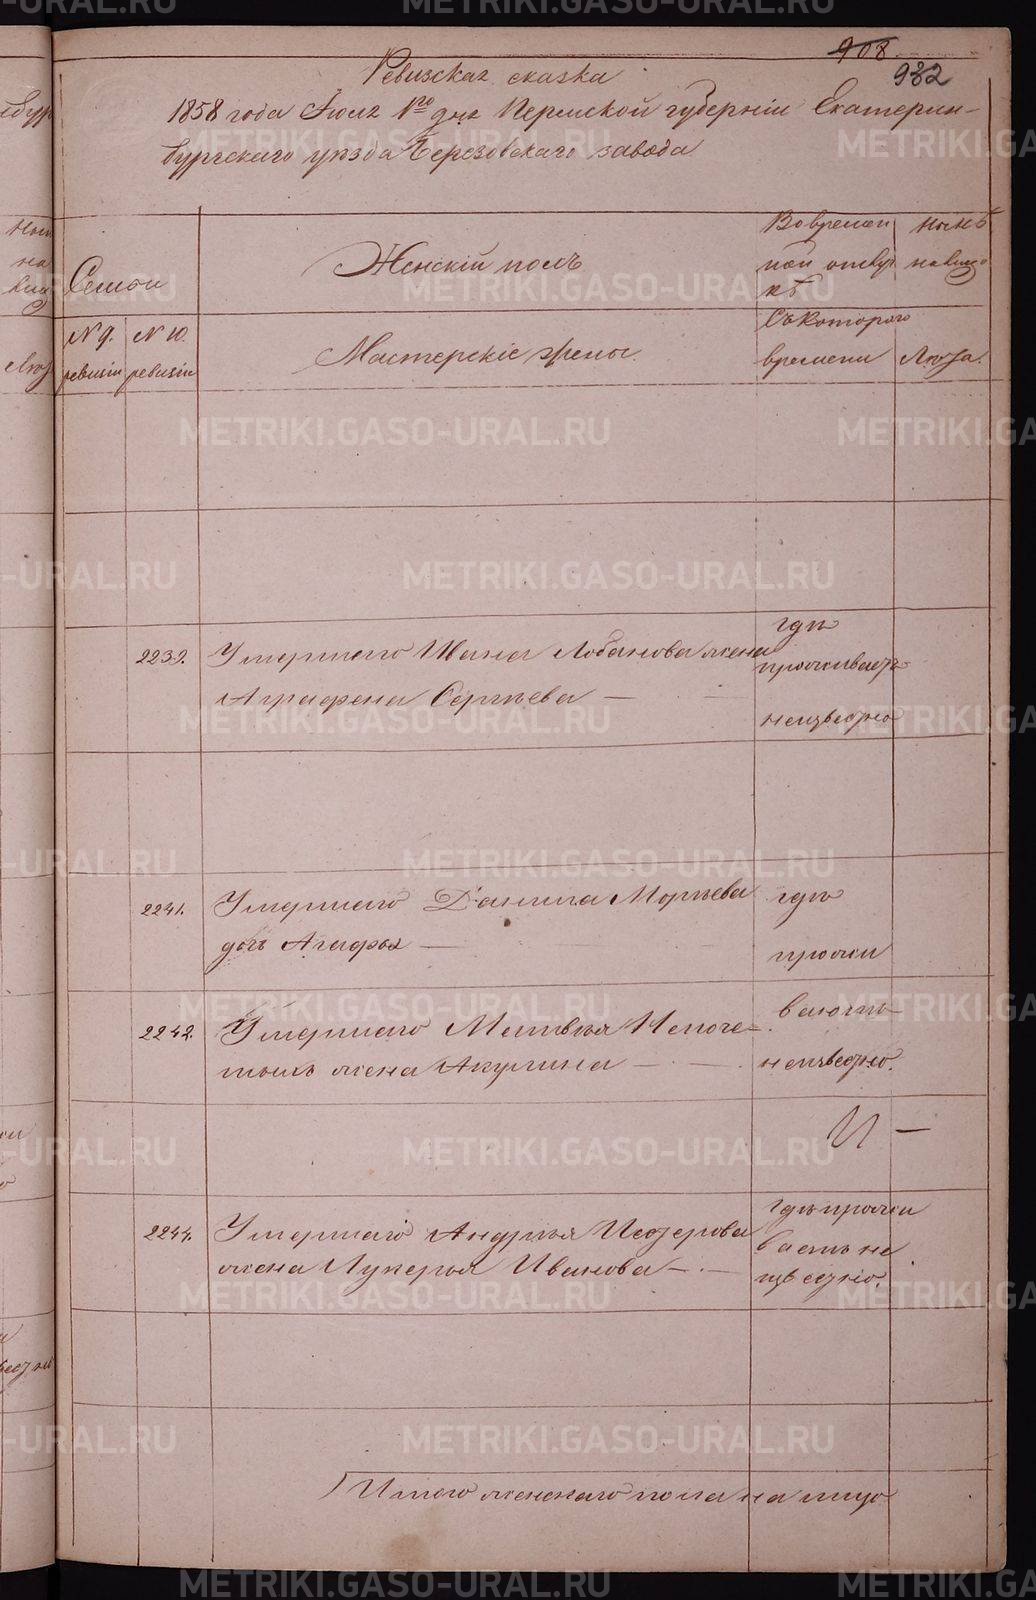 908
932
Ревизская сказка
1858 года Июля 1го дня Пермской губерніи Екатерин-
бургскаго уѣзда Березовскаго завода
Семьи
Женскій полъ
Во времен
ной отлуч
кѣ
нынѣ
на лицо
№ 9.
ревизіи
№ 10.
ревизіи
Мастерскіе жены.
Съ котораго
времени
Лѣта.
2239. Умершаго Ивана Лобанова жена
Аграфена Сергѣева —
гдѣ
проживаетъ
неизвестно
2241. Умершаго Данила
дочь Агафья —
гдѣ
прожи
2242. Умершаго Матвѣя
жена Акулина —
ваютъ
неизвестно.
И —
2244. Умершаго Андрѣя
жена Лукерья Иванова —
гдѣ прожи
ваетъ не
извѣстно.
Итого женскаго пола на лицо
METRIKI.GASO-URAL.RU